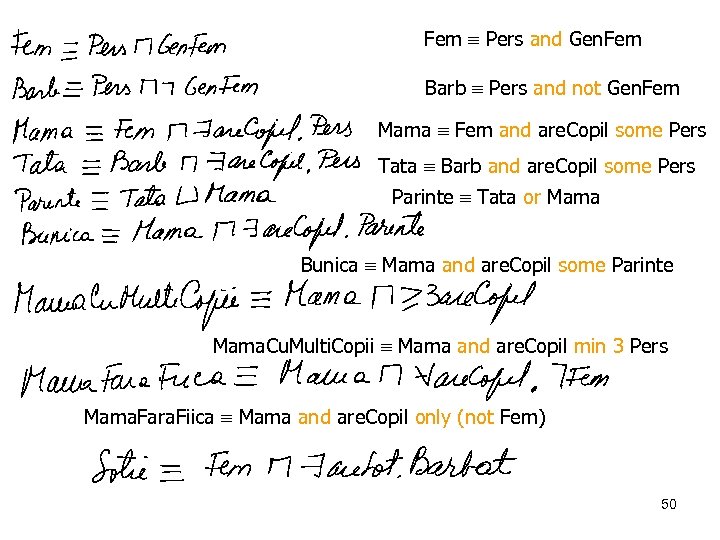 Fem ≡ Pers ⊓ GenFem
Fem ≡ Pers and Gen.Fem
Barb ≡ Pers ⊓ ¬ GenFem
Barb ≡ Pers and not Gen.Fem
Mama ≡ Fem ⊓ ∃areCopil.Pers
Mama ≡ Fem and are.Copil some Pers
Tata ≡ Barb ⊓ ∃areCopil.Pers
Tata ≡ Barb and are.Copil some Pers
Parinte ≡ Tata ⊔ Mama
Parinte ≡ Tata or Mama
Bunica ≡ Mama ⊓ ∃areCopil.Parinte
Bunica ≡ Mama and are.Copil some Parinte
MamaCuMultiCopii ≡ Mama ⊓ ≥3areCopil
Mama.Cu.Multi.Copii ≡ Mama and are.Copil min 3 Pers
MamaFaraFiica ≡ Mama ⊓ ∀areCopil.¬Fem
Mama.Fara.Fiica ≡ Mama and are.Copil only (not Fem)
Sotie ≡ Fem ⊓ ∃areSot.Barbat
50